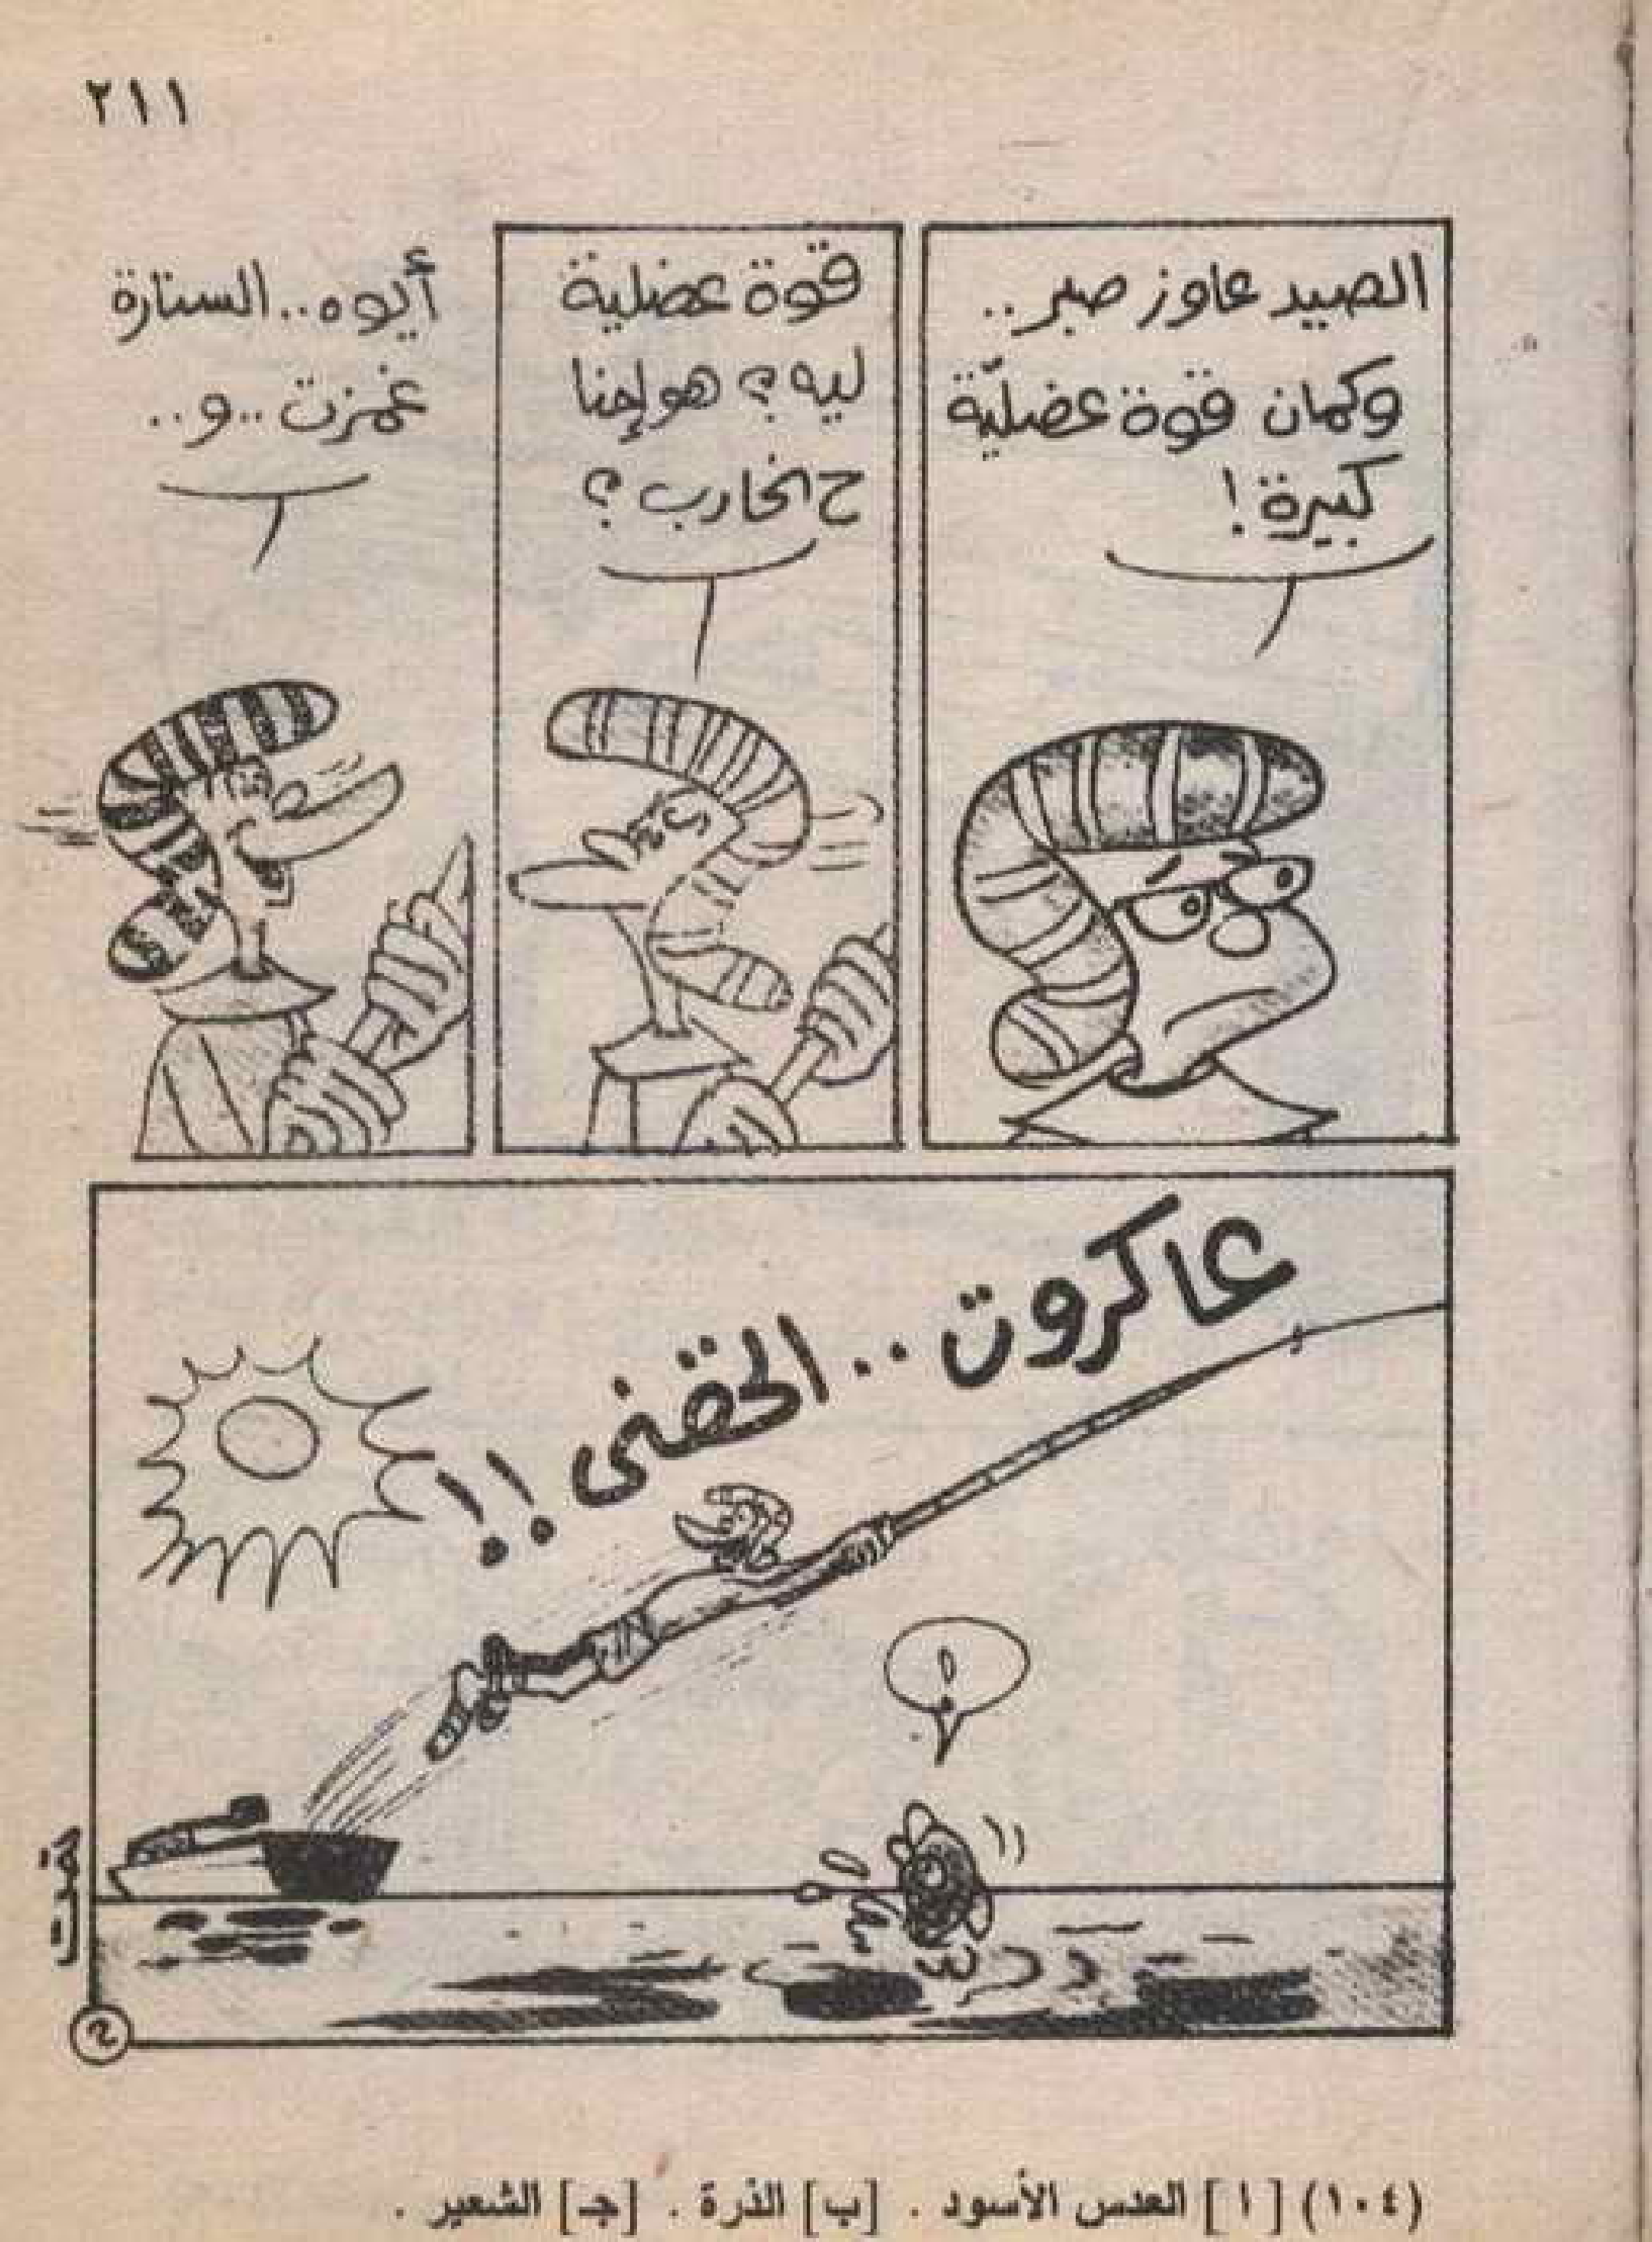 ٢١١
الصيد عاوز صبر..
وكمان قوة عضليّة
كبيرة!
قوة عضلية
ليه؟ هو إحنا
ح نحارب؟
أيوه.. السنارة
غمزت.. و..
عاكروت.. الحقنى!!
!
٢
(١٠٤) [ ا ] العدس الأسود . [ب] الذرة . [جـ] الشعير .